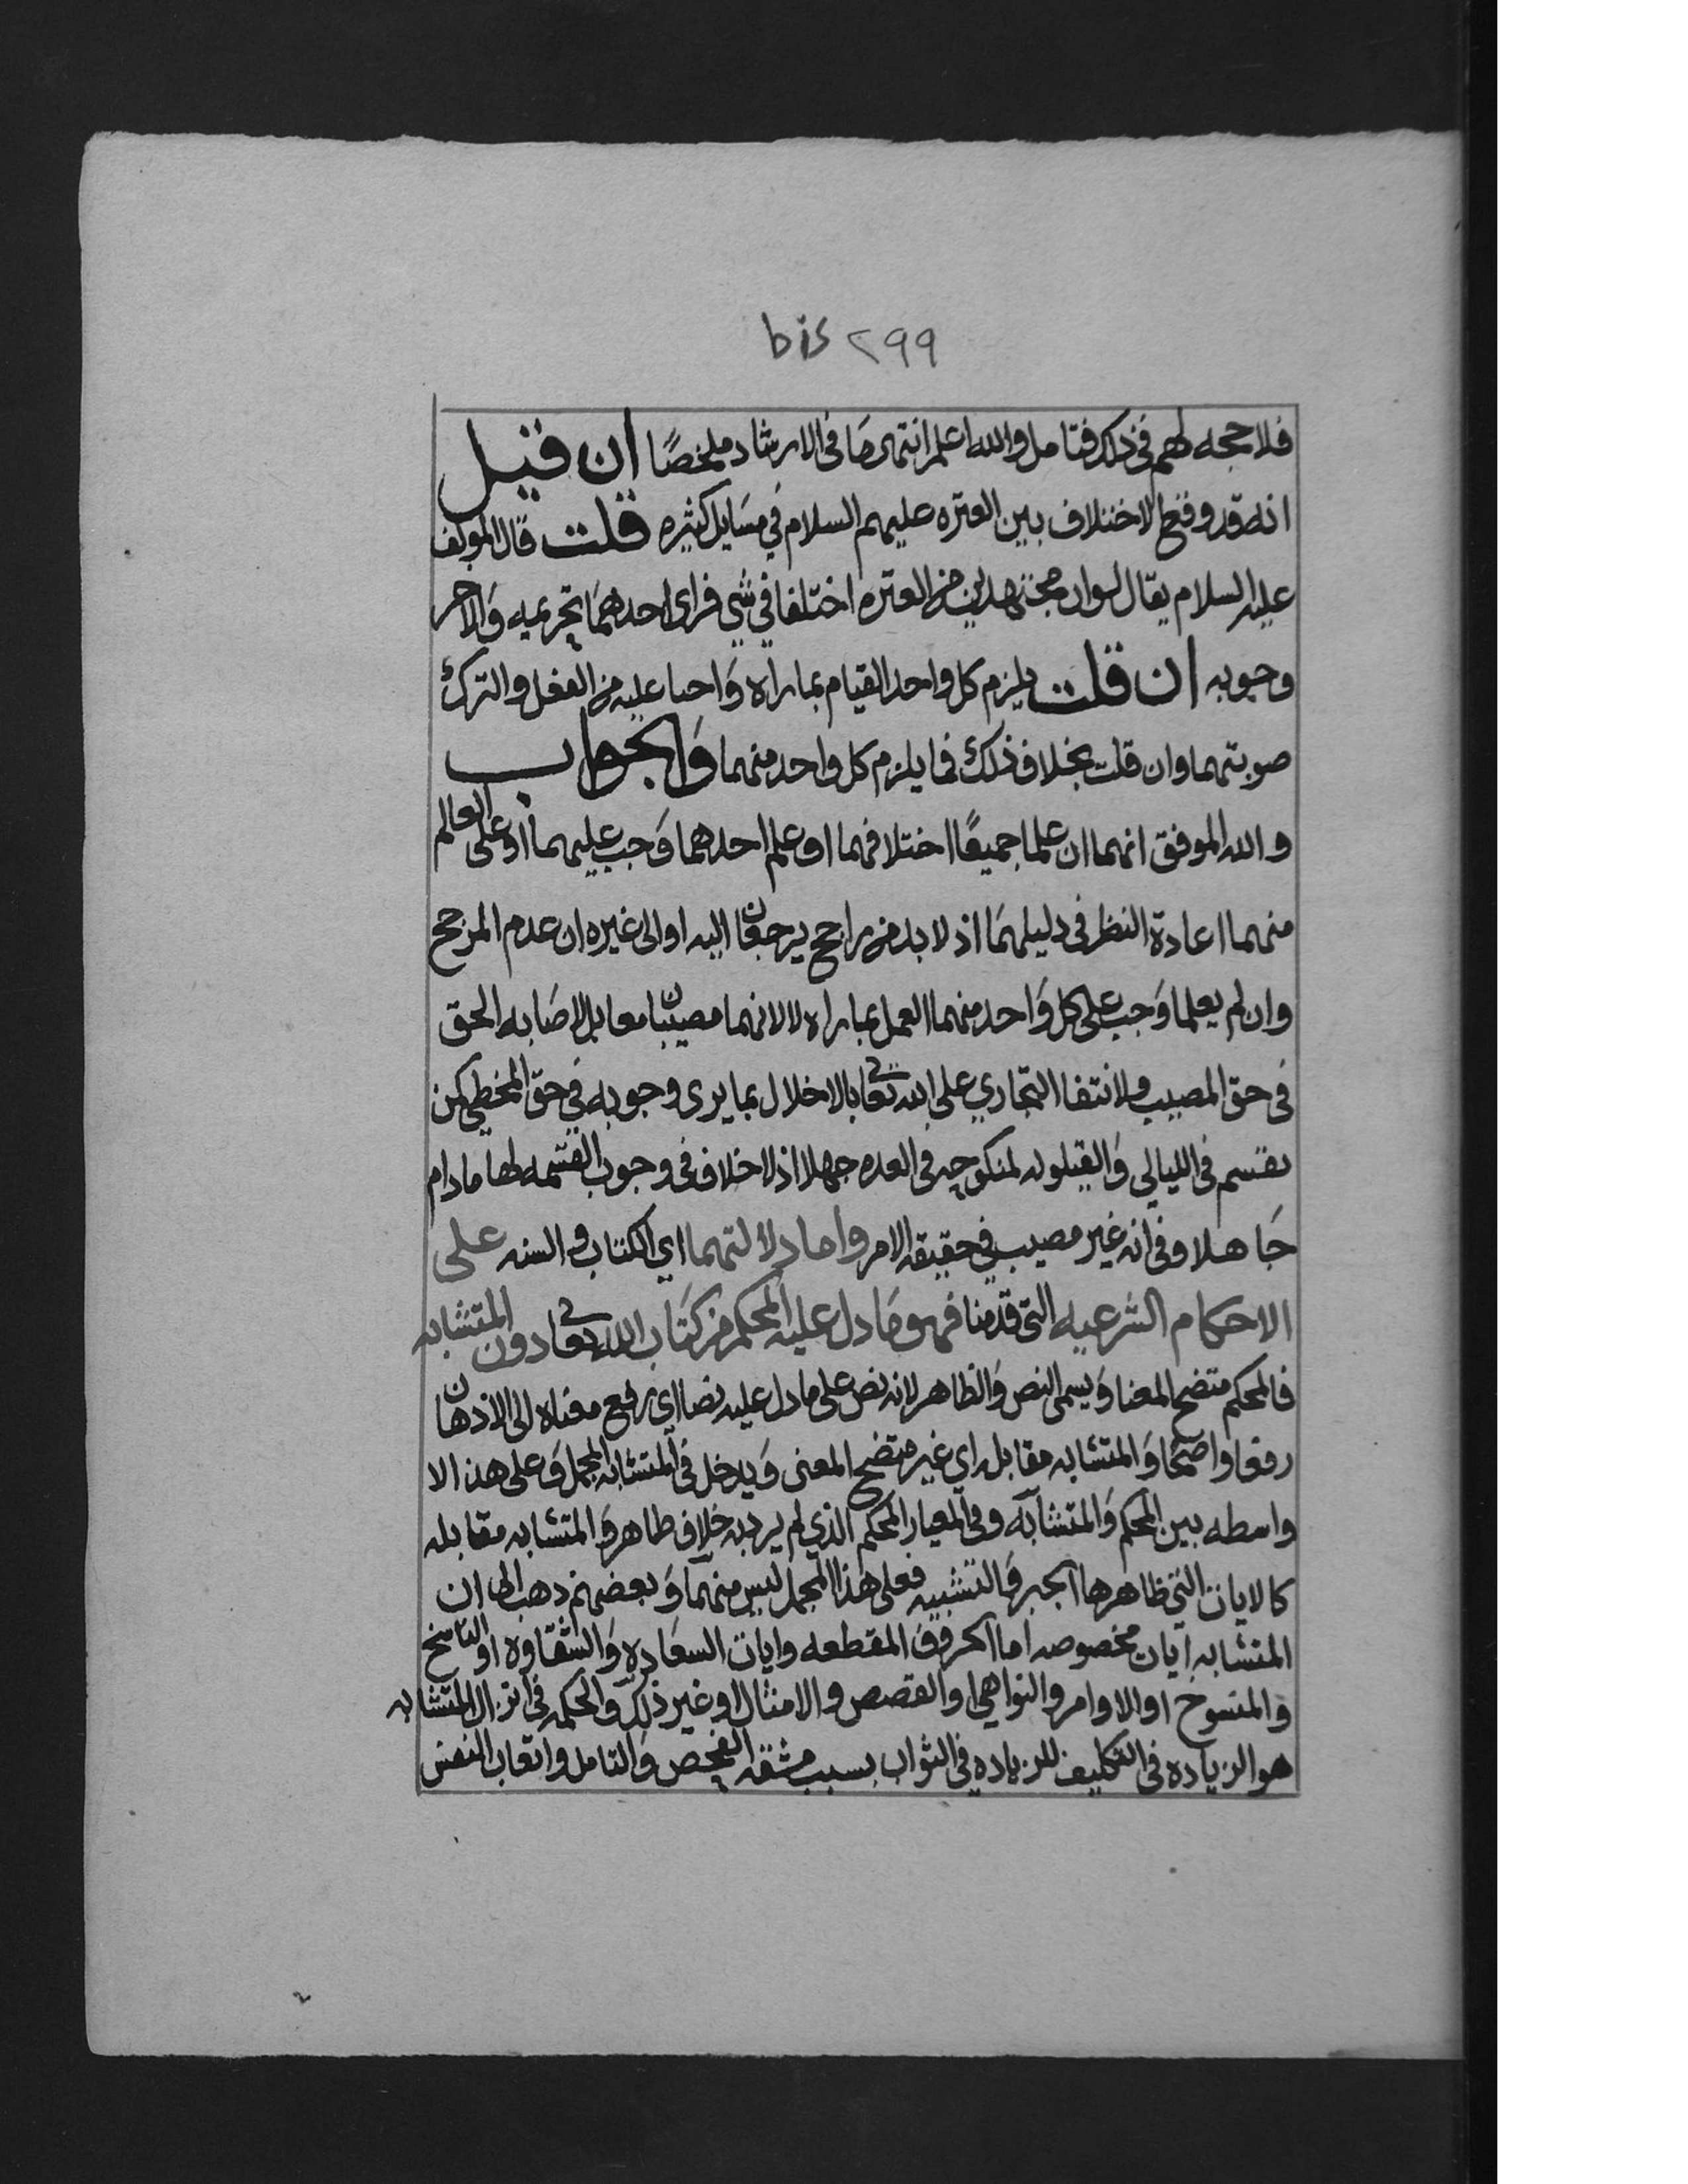 bis ٢٩٩
فلا حجه لهم في ذلك فتامل والله اعلم انتهى ما في الارشاد ملخصًا ان قيل
انه قد وقع الاختلاف بين العتره عليهم السلام في مسايل كثيره قلت قال المولف
عليه السلام يقال لو ان مجتهدين من العتره اختلفا في شي فراى احدهما تحريمه والاخر
وجوبه ان قلت يلزم كل واحد القيام بما راه واجبا عليه من الفعل والترك
صوبتهما وان قلت بخلاف ذلك فما يلزم كل واحد منهما والجواب
والله الموفق انهما ان علما جميعًا اختلافهما او علم احدهما وجب عليهما او على العالم
منهما اعادة النظر في دليلهما اذ لا بد من راجح يرجعان اليه او الى غيره ان عدم المرجح
وان لم يعلما وجب على كل واحد منهما العمل بما راه لا لانهما مصيبان معا بل لاصابه الحق
في حق المصيب ولانتفا التجاري على الله تعالى بالاخلال بما يرى وجوبه في حق المخطي كمن
يقسم في الليالي والقيلوله لمنكوحه في العده جهلا اذ لا خلاف في وجوب القسمه لها ما دام
جاهلا وفي انه غير مصيب في حقيقه الامر واما دلالتهما اي الكتاب والسنه على
الاحكام الشرعيه التي قدمنا فهو ما دل عليه المحكم من كتاب الله تعالى دون المتشابه
فالمحكم متضح المعنا ويسمى النص والظاهر لانه نص على ما دل عليه نصا اي رفع معناه الى الاذهان
رفعا واضحًا والمتشابه مقابله اي غير متضح المعنى ويدخل في المتشابه المجمل وعلى هذا لا
واسطه بين المحكم والمتشابه وفي المعيار المحكم الذي لم يرد به خلاف ظاهره والمتشابه مقابله
كالايات التي ظاهرها الجبر والتشبيه فعلى هذا المجمل ليس منهما وبعضهم ذهب الى ان
المتشابه ايات مخصوصه اما الحروف المقطعه وايات السعاده والشقاوه او الناسخ
والمنسوخ او الاوامر والنواهي او القصص والامثال او غير ذلك والحكمه في انزال المتشابه
هو الزياده في التكليف للزياده في الثواب بسبب مشقه الفحص والتامل واتعاب النفس